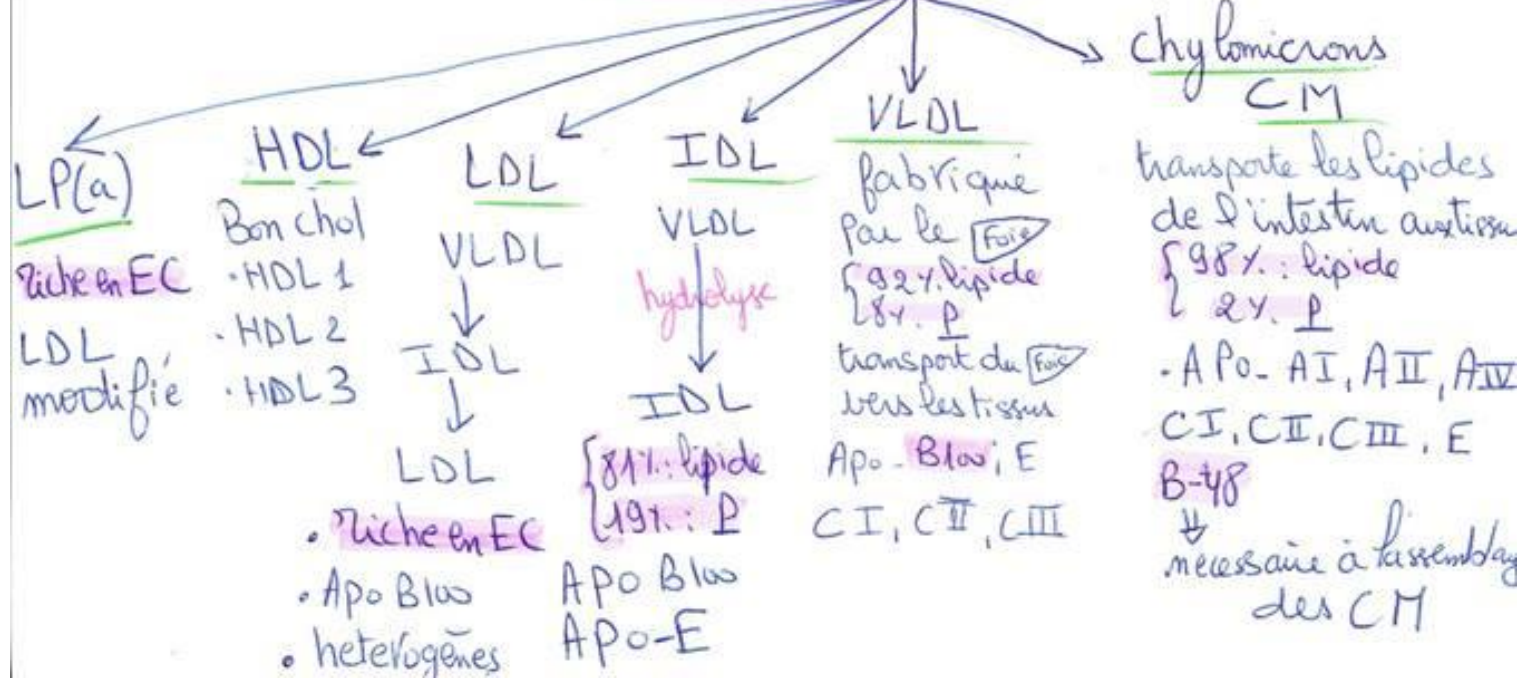 LP(a)
Riche en EC
LDL
modifié
HDL
Bon chol
· HDL 1
· HDL 2
· HDL 3
LDL
VLDL
IDL
LDL
• Riche en EC
• Apo B100
• heterogènes
IDL
VLDL
hydrolyse
IDL
81% : lipide
19% : P
APO B100
APO-E
VLDL
fabriqué
par le Foie
92% lipide
8% P
transport du Foie
vers les tissus
Apo-B100, E
CI, CII, CIII
Chylomicrons
CM
transporte les lipides
de l'intestin aux tissu
98% : lipide
2% P
· APo- AI, AII, AIV
CI, CII, CIII, E
B-48
⇓
necessaire à l'assemblag
des CM